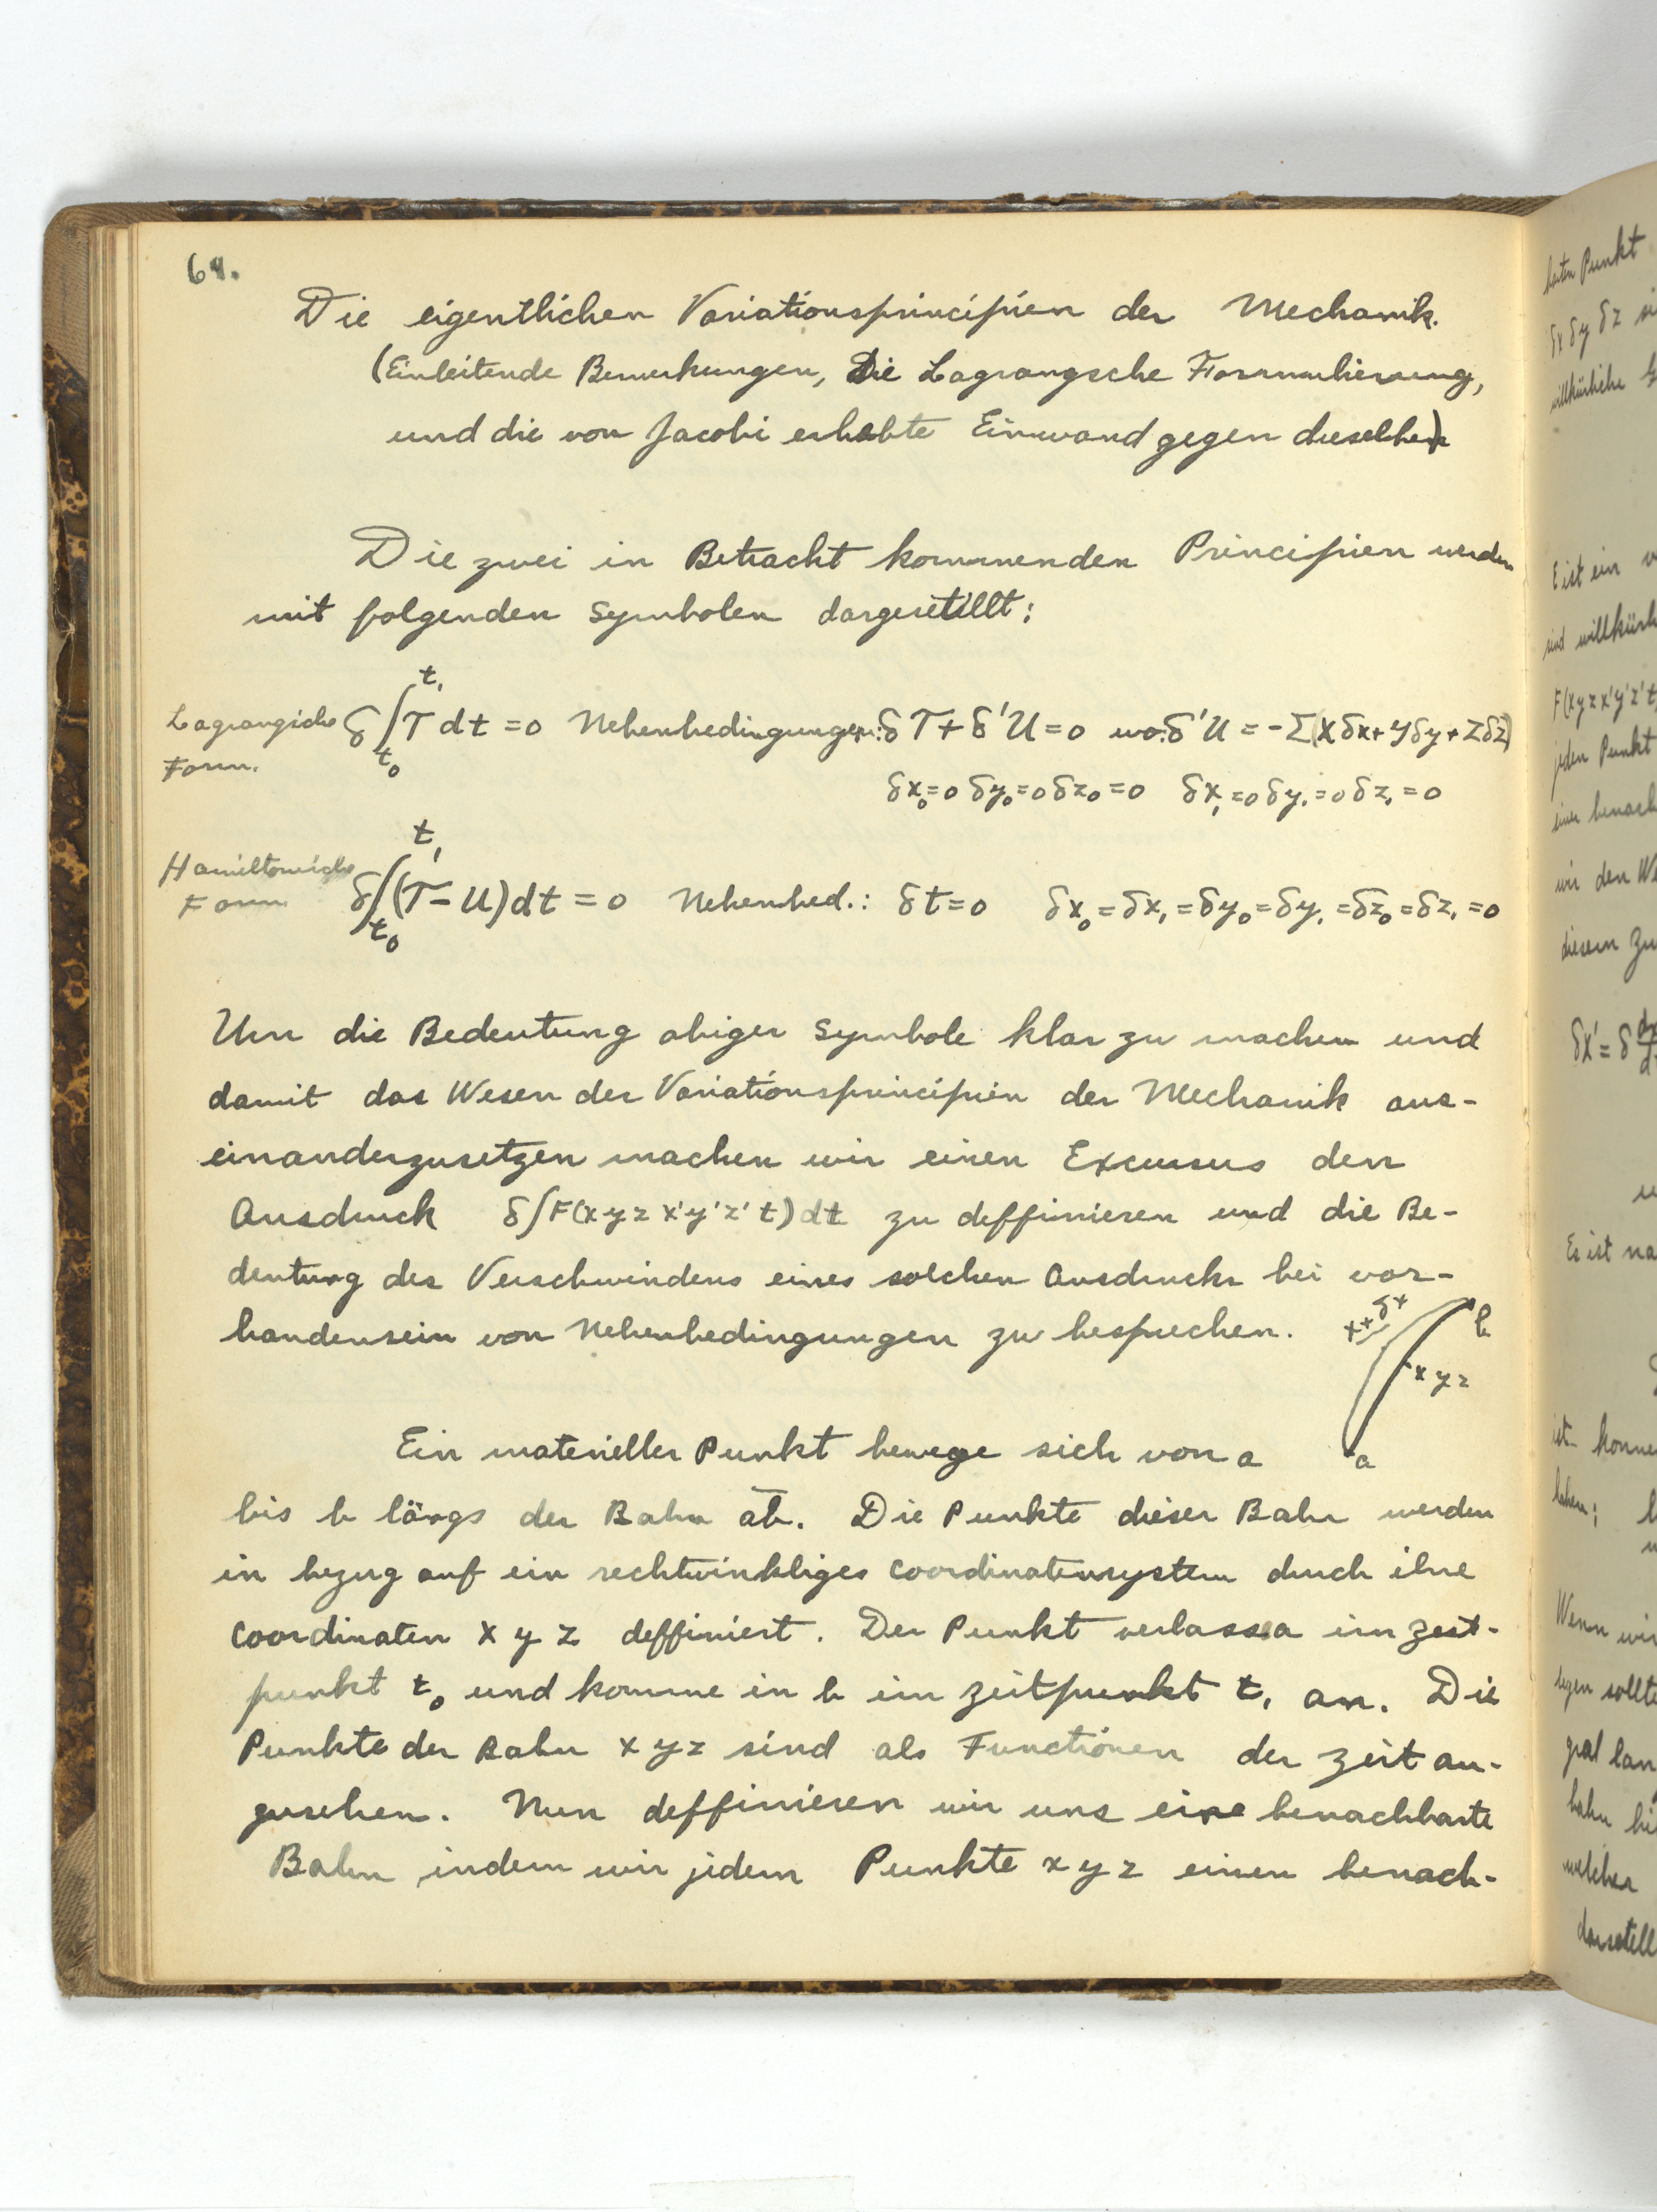 64.
Die eigentlichen Variationsprincipien der Mechanik.
(Einleitende Bemerkungen, Die Lagrangsche Formulierung,
und die von Jacobi erhobte Einwand gegen dieselben)
Die zwei in Betracht kommenden Principien werden
mit folgenden Symbolen dargestellt:
Lagrangische Form. δ∫_{t₀}^{t₁} T dt = 0 Nebenbedingungen: δT + δ'U = 0 wo: δ'U = -Σ(Xδx + Yδy + Zδz)
δx₀=0 δy₀=0 δz₀=0 δx₁=0 δy₁=0 δz₁=0
Hamiltonische Form δ∫_{t₀}^{t₁} (T-U)dt = 0 Nebenbed.: δt=0 δx₀=δx₁=δy₀=δy₁=δz₀=δz₁=0
Um die Bedeutung obiger Symbole klar zu machen und
damit das Wesen der Variationsprincipien der Mechanik aus-
einanderzusetzen machen wir einen Excursus den
Ausdruck δ∫F(x y z x' y' z' t)dt zu deffinieren und die Be-
deutung des Verschwindens eines solchen Ausdrucks bei vor-
handensein von Nebenbedingungen zu besprechen.
x+δx
b
x y z
a
Ein materieller Punkt bewege sich von a
bis b längs der Bahn ab. Die Punkte dieser Bahn werden
in bezug auf ein rechtwinkliges Coordinatensystem durch ihre
Coordinaten x y z deffiniert. Der Punkt verlasse a im Zeit-
punkt t₀ und komme in b im Zeitpunkt t₁ an. Die
Punkte der Bahn x y z sind als Functionen der Zeit an-
zusehen. Nun deffinieren wir uns eine benachbarte
Bahn, indem wir jedem Punkte x y z einen benach-
ten Punkt
δx δy δz
willkürliche
E ist ein
sind willkürl
F(x y z x' y' z' t
jeden Punkt
einer benach
wir den We
diesem Zu
δx' = δ
Es ist na
ist konne
Wenn wir
sollte
bahn
welcher
darstell